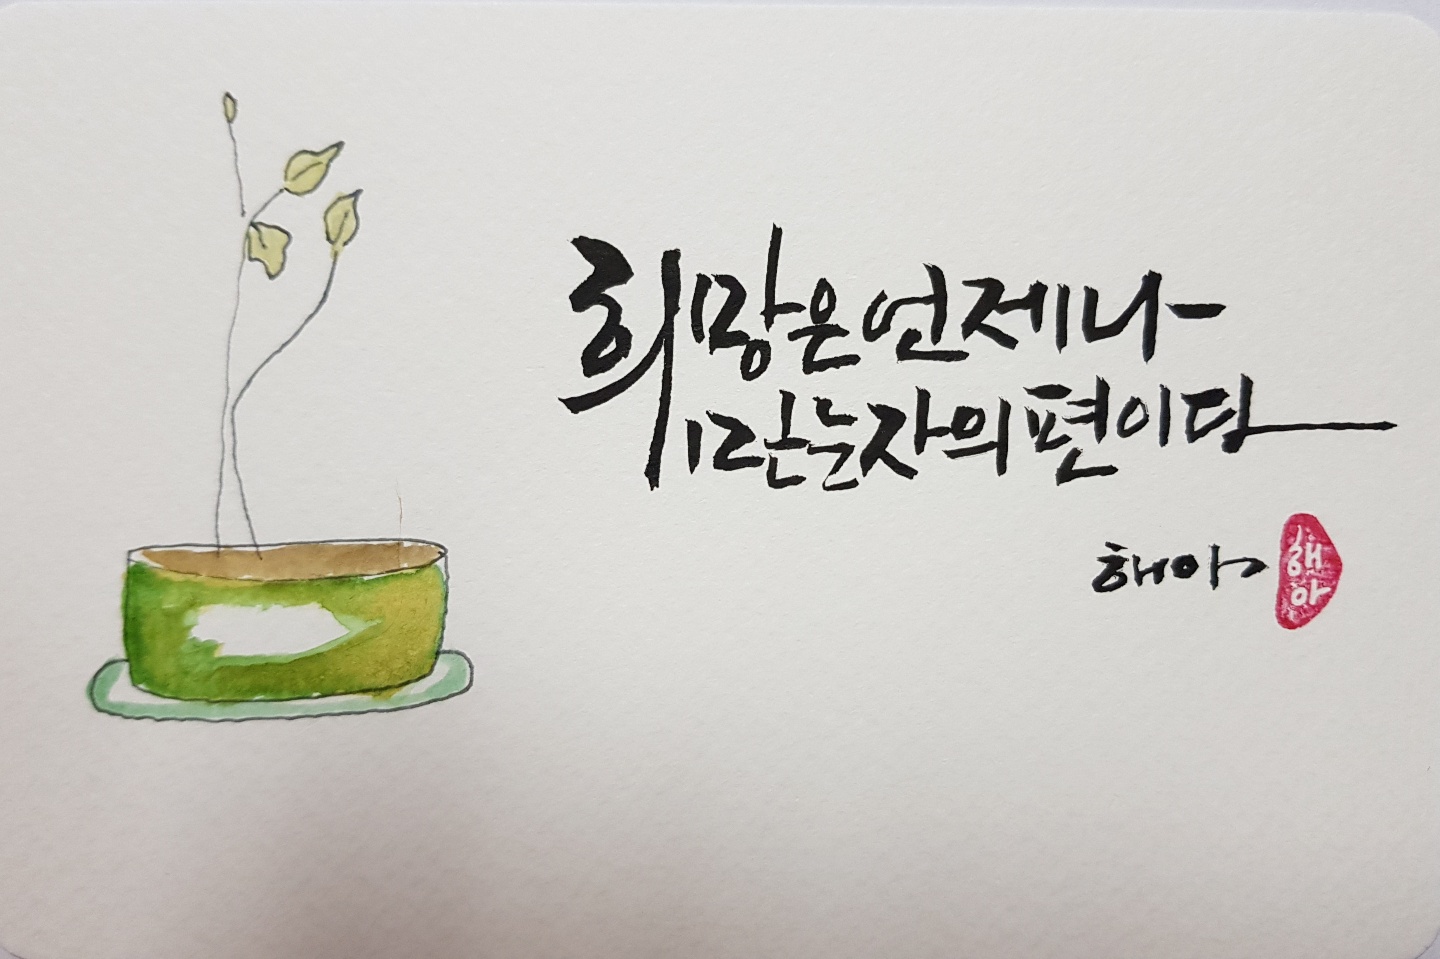 희망은 언제나
믿는자의 편이다
해아
해아